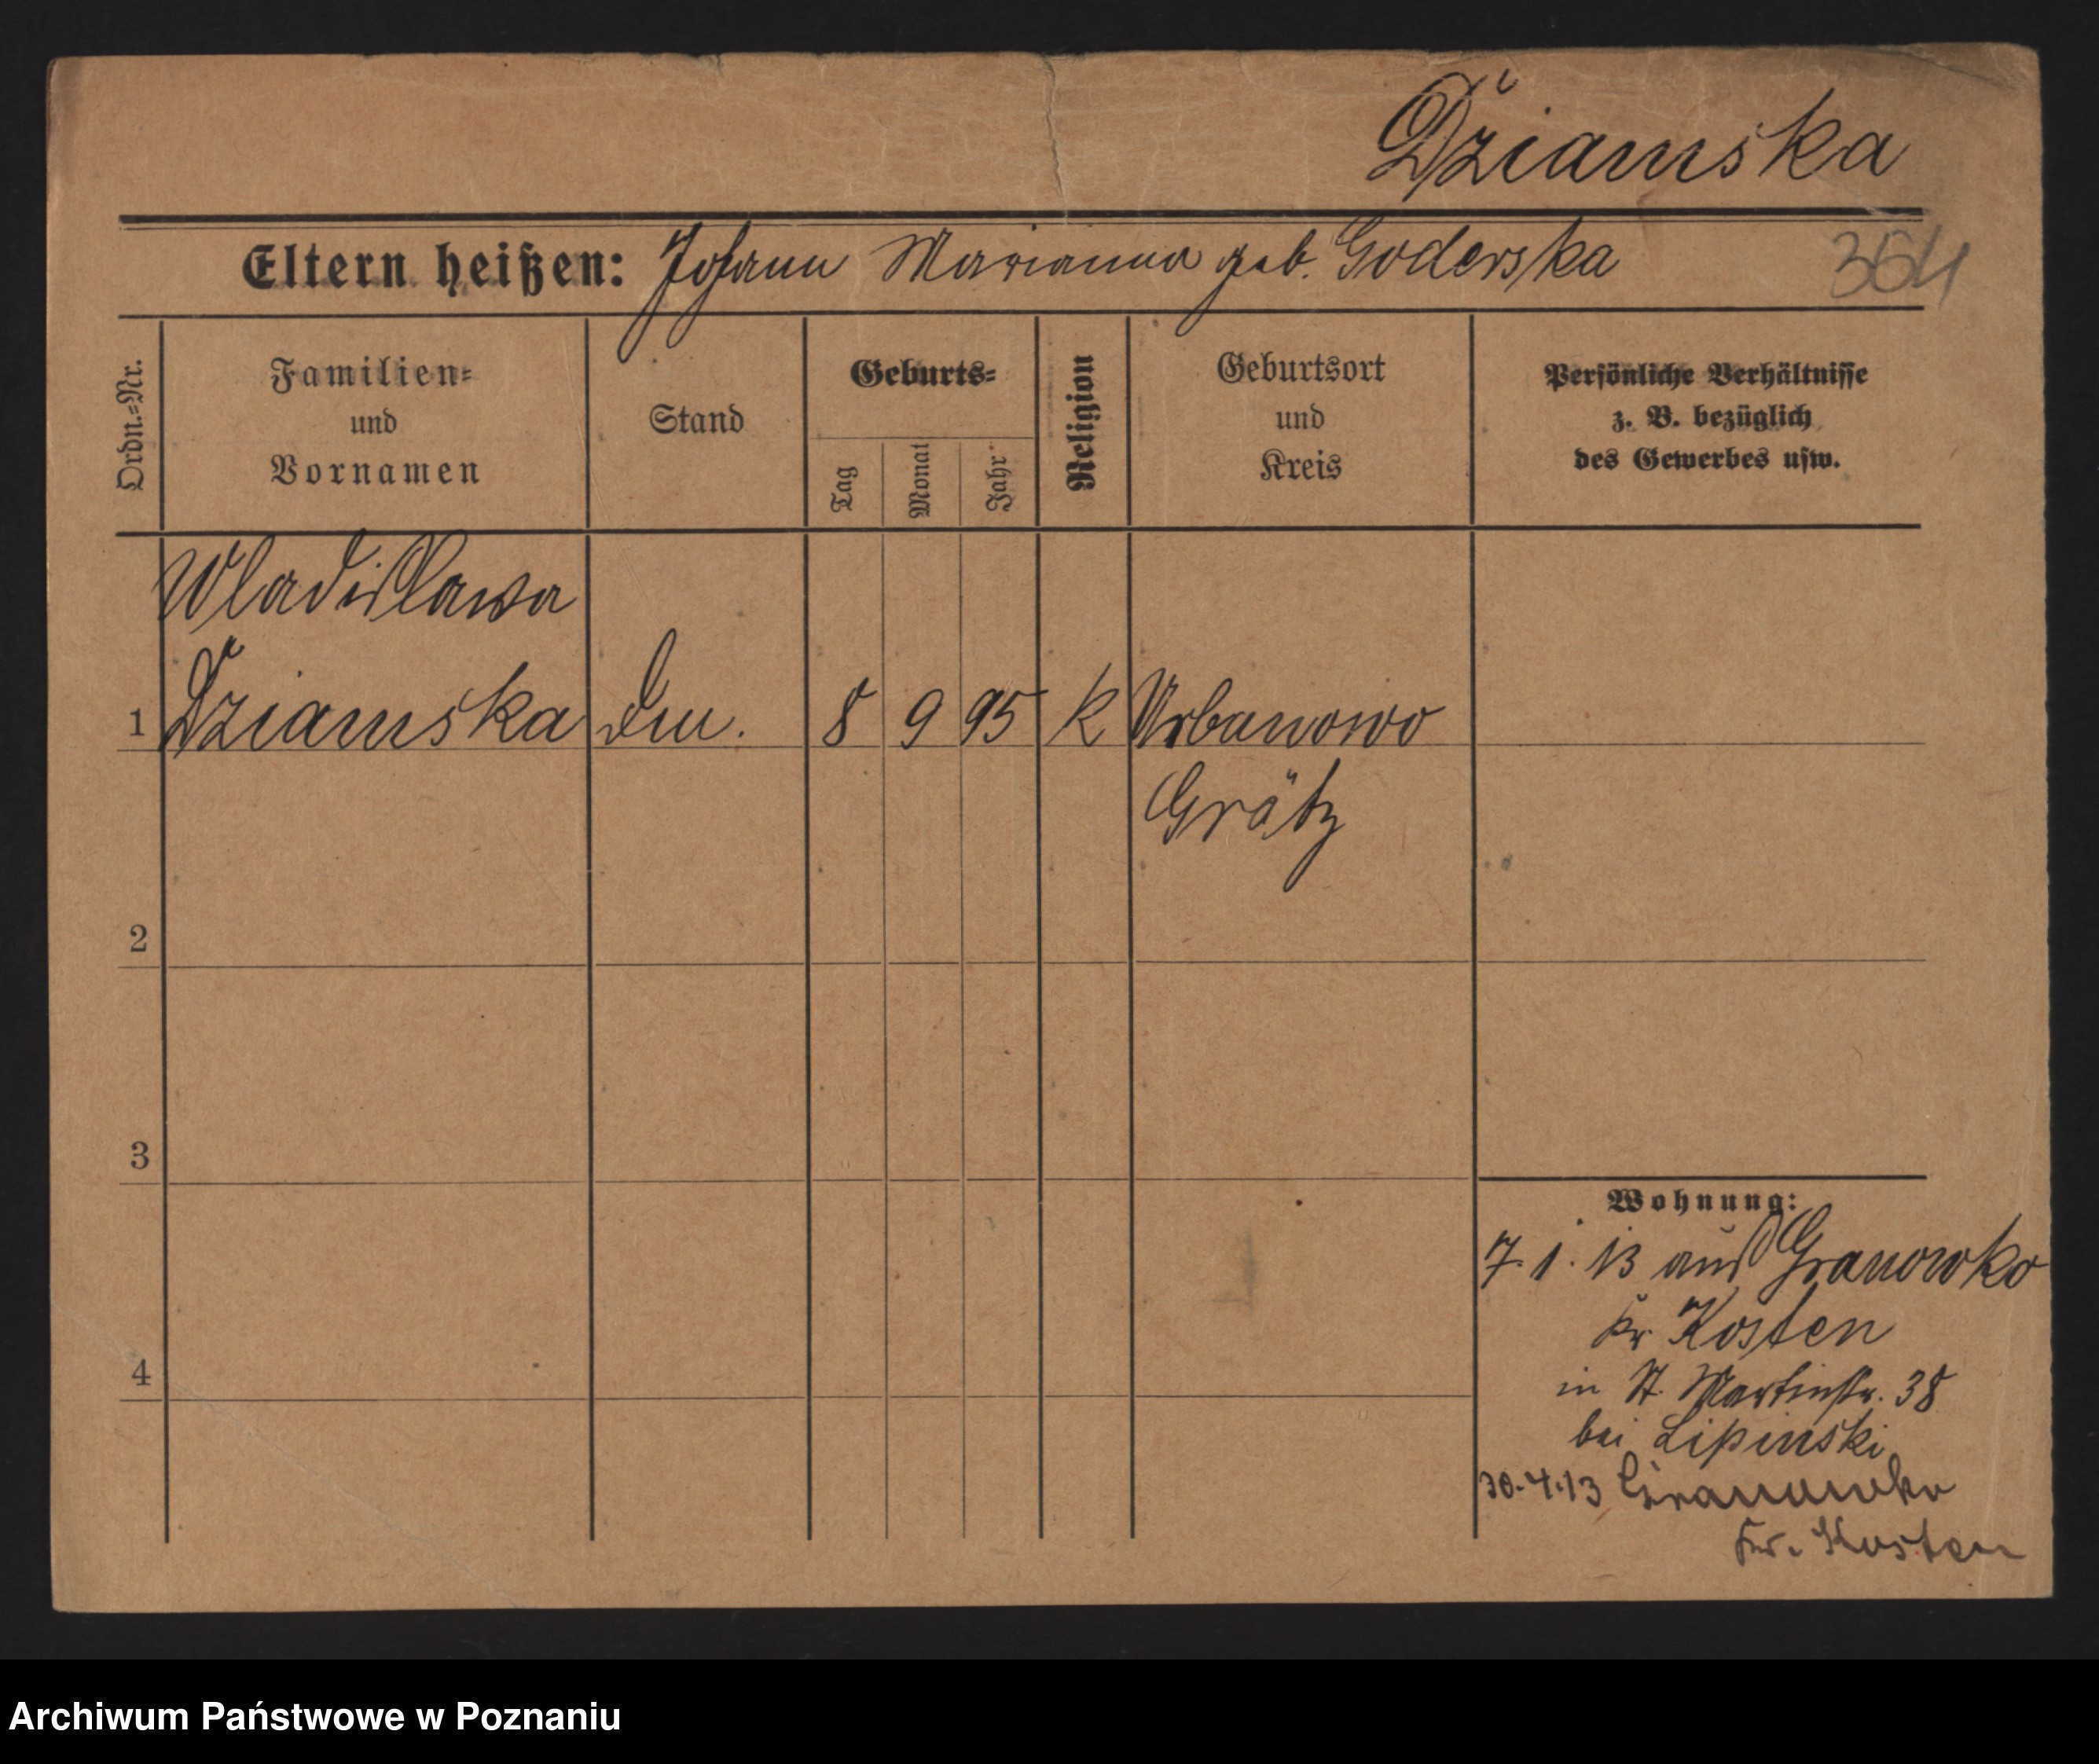 Dziamska
Eltern heißen: Johann Marianna geb. Goderska
364
Ordn.=Nr.
Familien=
und
Vornamen
Stand
Geburts=
Tag
Monat
Jahr
Religion
Geburtsort
und
Kreis
Persönliche Verhältnisse
z. B. bezüglich
des Gewerbes usw.
Wladislawa
1 Dziamska 8 9 95 K Urbanowo
Grätz
2
3
4
Wohnung:
7. 1. 13 aus Granowko
Kr. Kosten
in St. Martinstr. 38
bei Lipinski
30.4.13 Granowko
Kr. Kosten
Archiwum Państwowe w Poznaniu